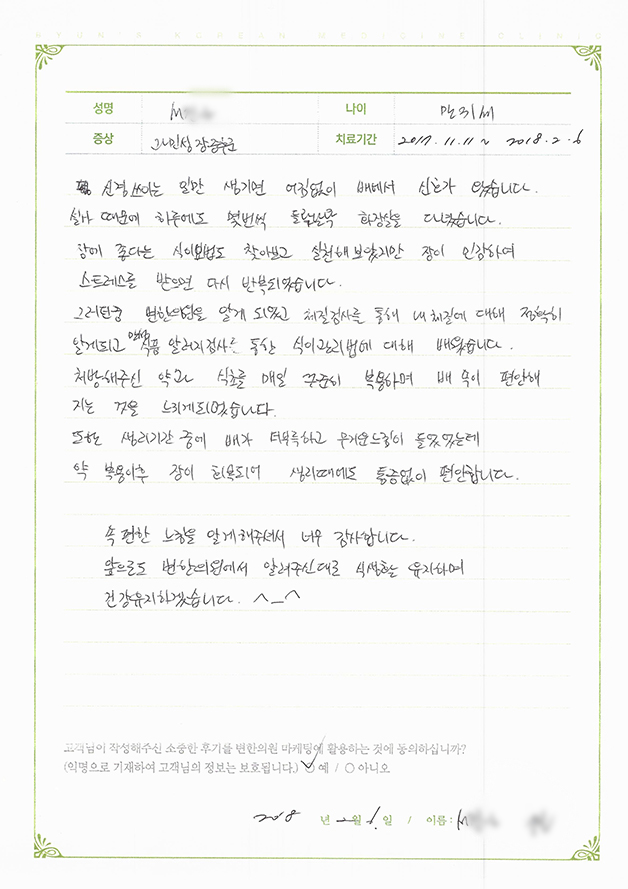 BYUN'S KOREAN MEDICINE CLINIC
성명 M 나이 만 31세
증상 과민성 장증후군 치료기간 2017. 11. 11 ~ 2018. 2. 6
신경쓰이는 일만 생기면 여지없이 배에서 신호가 왔습니다.
설사 때문에 하루에도 몇번씩 들락날락 화장실을 다녔습니다.
장에 좋다는 식이요법도 찾아보고 실천해 보았지만 장이 민감하여
스트레스를 받으면 다시 반복되었습니다.
그러던중 변한의원을 알게 되었고 체질검사를 통해 내 체질에 대해 정확히
알게되고 만성식품 알러지검사를 통한 식이관리법에 대해 배웠습니다.
처방해주신 약과 식초를 매일 꾸준히 복용하며 배 속이 편안해
지는 것을 느끼게되었습니다.
또한 생리기간 중에 배가 더부룩하고 무거운느낌이 들었었는데
약 복용이후 장이 회복되어 생리때에도 통증없이 편안합니다.
속 편한 느낌을 알게해주셔서 너무 감사합니다.
앞으로도 변한의원에서 알려주신대로 식생활을 유지하며
건강유지하겠습니다. ^_^
고객님이 작성해주신 소중한 후기를 변한의원 마케팅에 활용하는 것에 동의하십니까?
(익명으로 기재하여 고객님의 정보는 보호됩니다.) ✓○ 예 / ○ 아니오
2018 년 2월 6일 / 이름 : M